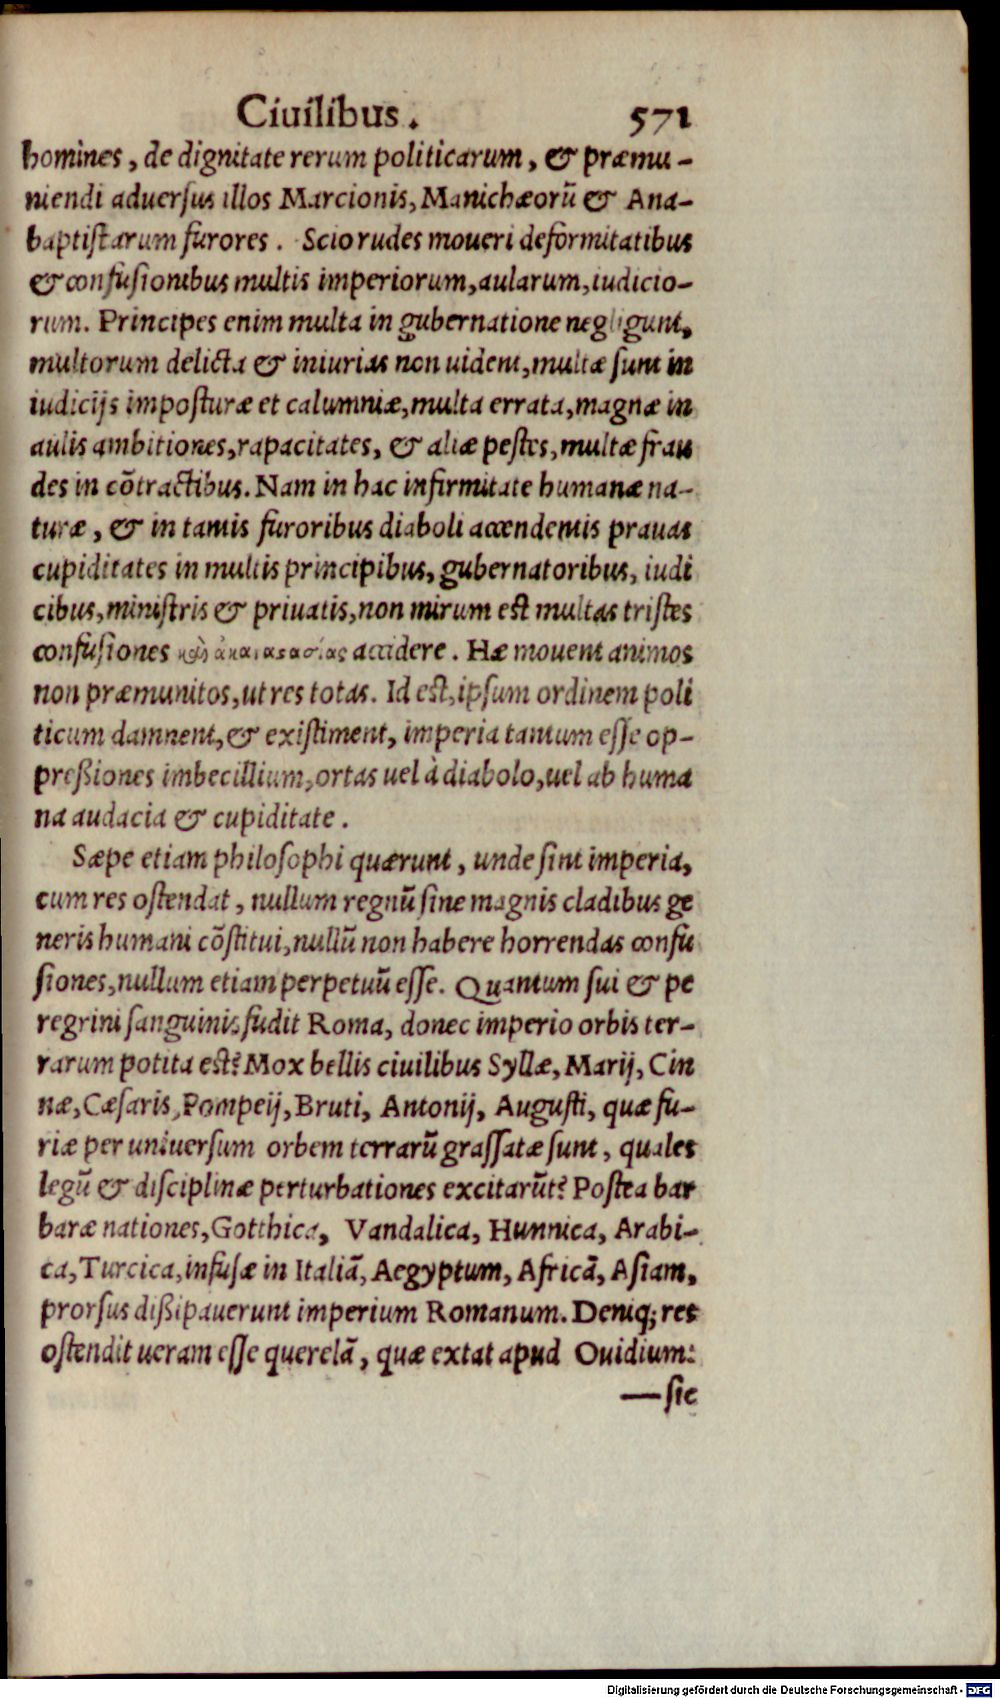 Ciuilibus. 571
homines, de dignitate rerum politicarum, & præmu-
niendi aduersus illos Marcionis, Manichæorũ & Ana-
baptistarum furores. Scio rudes moueri deformitatibus
& confusionibus multis imperiorum, aularum, iudicio-
rum. Principes enim multa in gubernatione negligunt,
multorum delicta & iniurias non uident, multæ sunt in
iudicijs imposturæ et calumniæ, multa errata, magnæ in
aulis ambitiones, rapacitates, & aliæ pestes, multæ frau
des in cõtractibus. Nam in hac infirmitate humanæ na-
turæ, & in tantis furoribus diaboli accendentis prauas
cupiditates in multis principibus, gubernatoribus, iudi
cibus, ministris & priuatis, non mirum est multas tristes
confusiones καὶ ἀκαταστασίας accidere. Hæ mouent animos
non præmunitos, ut res totas. Id est, ipsum ordinem poli
ticum damnent, & existiment, imperia tantum esse op-
preßiones imbecillium, ortas uel à diabolo, uel ab huma
na audacia & cupiditate.
Sæpe etiam philosophi quærunt, unde sint imperia,
cum res ostendat, nullum regnũ sine magnis cladibus ge
neris humani cõstitui, nullũ non habere horrendas confu
siones, nullum etiam perpetuũ esse. Quantum sui & pe
regrini sanguinis fudit Roma, donec imperio orbis ter-
rarum potita est? Mox bellis ciuilibus Syllæ, Marij, Cin
næ, Cæsaris, Pompeij, Bruti, Antonij, Augusti, quæ fu-
riæ per uniuersum orbem terrarũ grassatæ sunt, quales
legũ & disciplinæ perturbationes excitarũt? Postea bar
baræ nationes, Gotthica, Vandalica, Hunnica, Arabi-
ca, Turcica, infusæ in Italiã, Aegyptum, Africã, Asiam,
prorsus dißipauerunt imperium Romanum. Deniq; res
ostendit ueram esse querelã, quæ extat apud Ouidium:
—sic
Digitalisierung gefördert durch die Deutsche Forschungsgemeinschaft - DFG